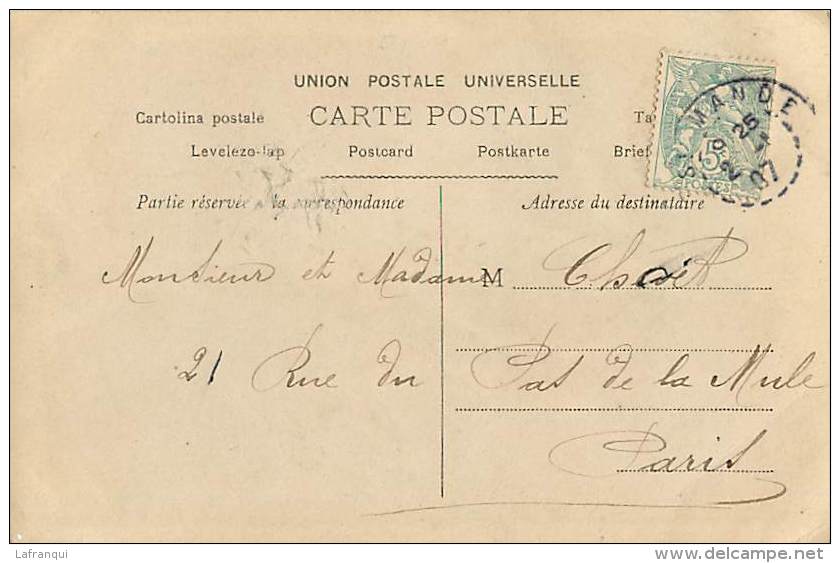 UNION POSTALE UNIVERSELLE
Cartolina postale CARTE POSTALE
Levelezo-lap Postcard Postkarte Brief
Partie réservée la correspondance Adresse du destinataire
MANDE
25
07
5
POSTES
Monsieur et Madame M
21 Rue du Pas de la Mule
Paris
Lafranqui
www.delcampe.net